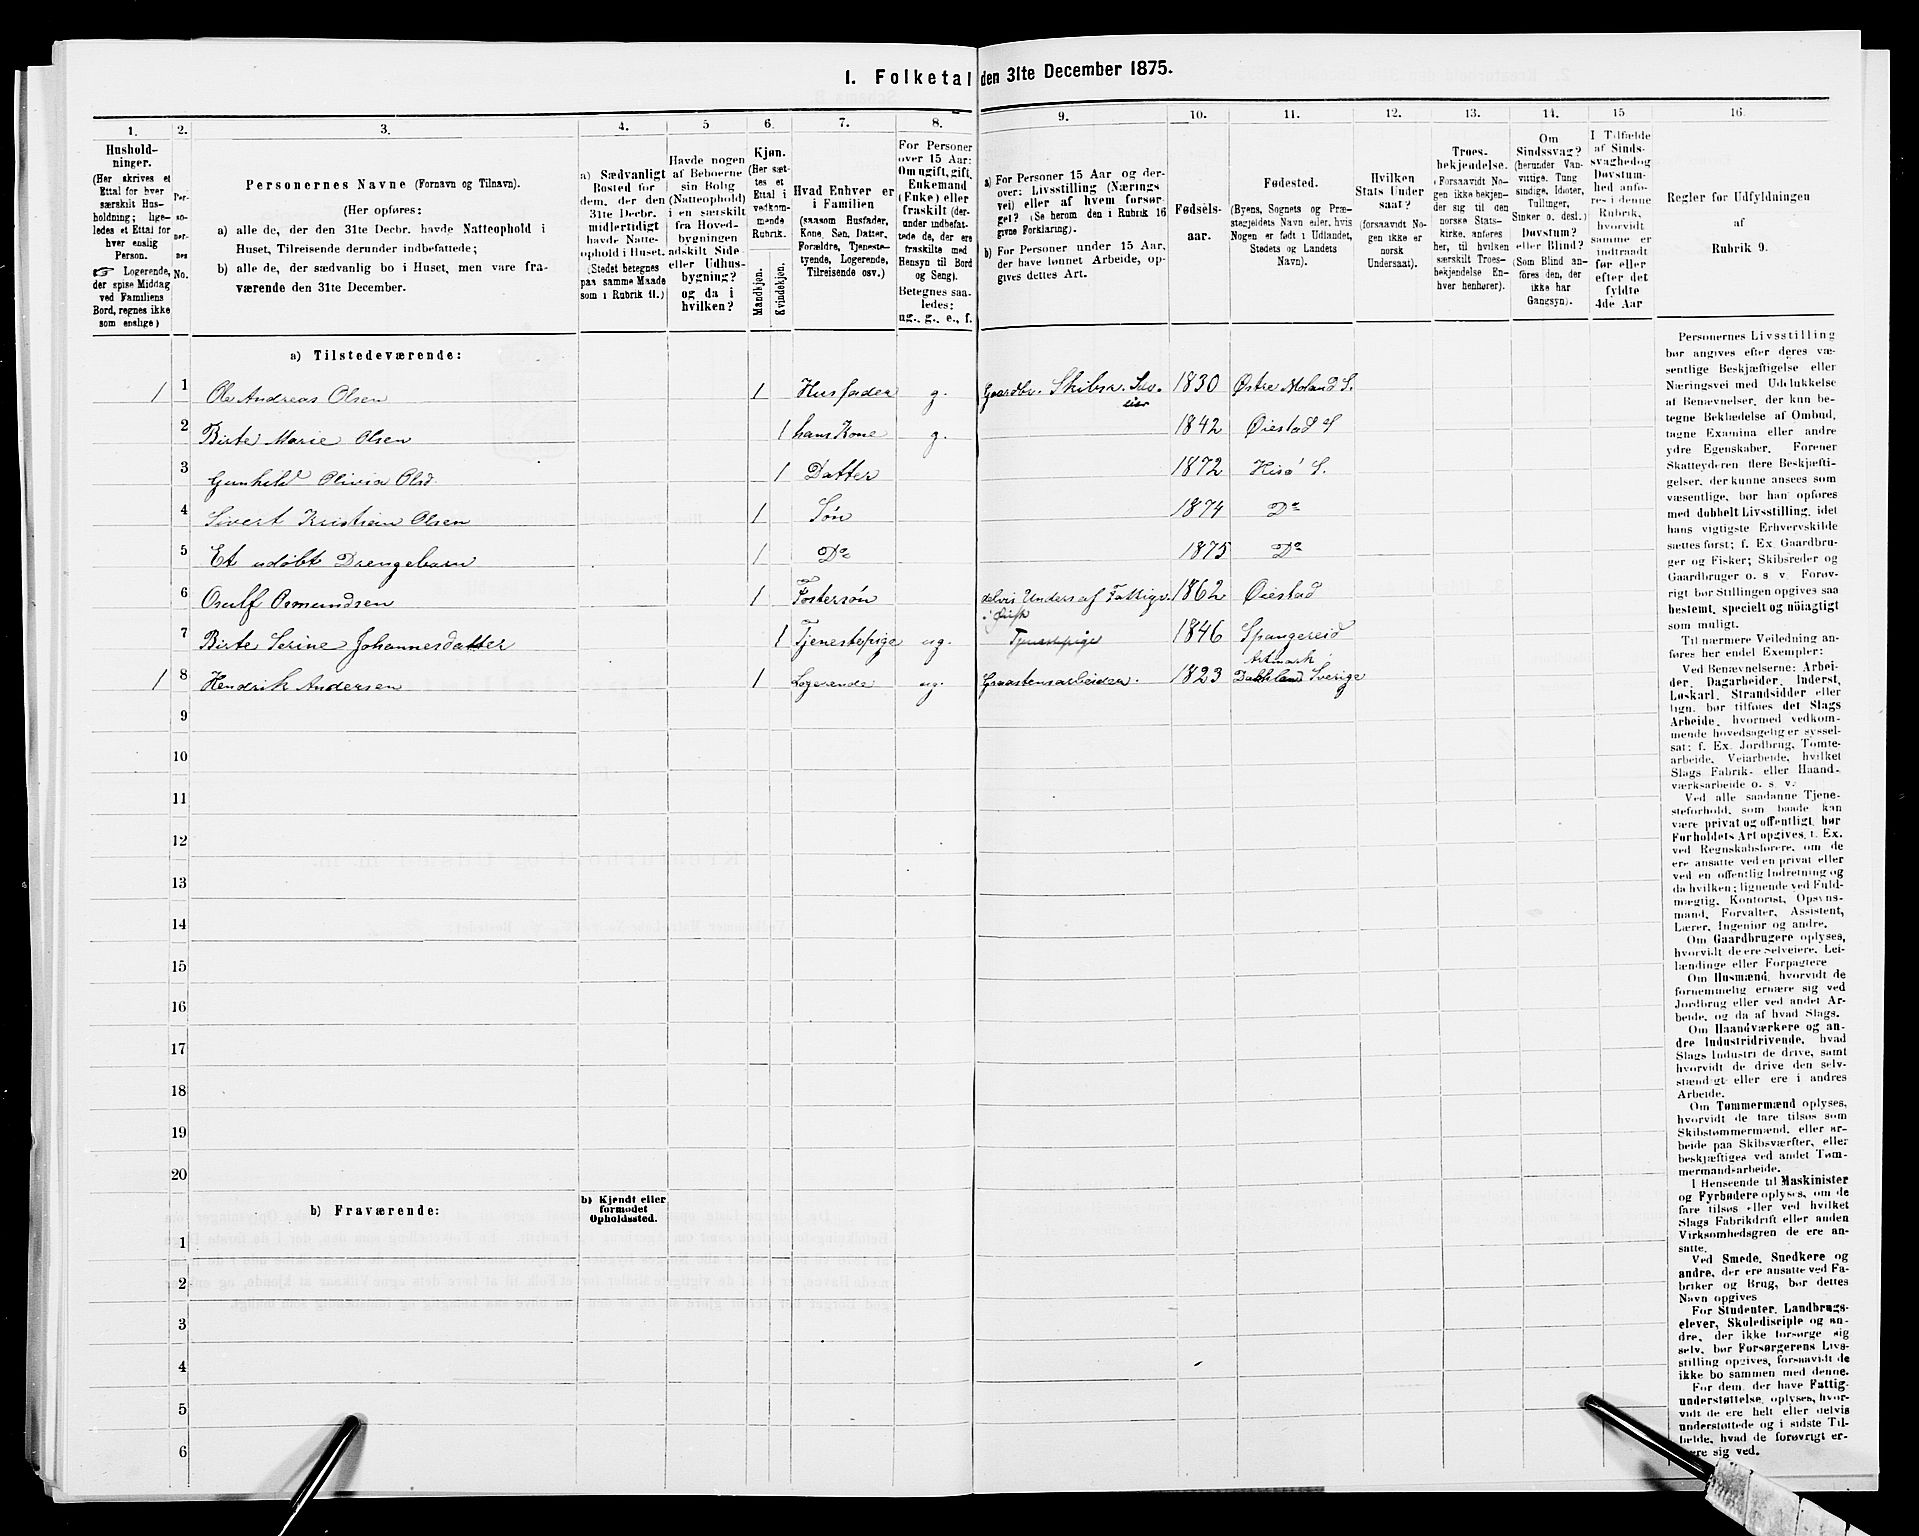 1. Folketal den 31te December 1875.
1. 2. 3. 4. 5 6. 7. 8. 9. 10. 11. 12. 13. 14. 15 16.
Hushold-
ninger.
(Her skrives et
Ettal for hver
særskilt Hus-
holdning; lige-
ledes et Ettal for
hver enslig
Person.
☞ Logerende,
der spise Middag
ved Familiens
Bord, regnes ikke
som enslige)
Per-
so-
ner-
nes
No.
Personernes Navne (Fornavn og Tilnavn).
(Her opføres:
a) alle de, der den 31te Decbr. havde Natteophold i
Huset, Tilreisende derunder indbefattede;
b) alle de, der sædvanlig bo i Huset, men vare fra-
værende den 31te December.
a) Sædvanligt
Bosted for
dem, der den
31te Decbr.
midlertidigt
havde Natte-
ophold i Huset.
(Stedet betegnes
paa samme Maade
som i Rubrik 11.)
Havde nogen
af Beboerne
sin Bolig
(Natteophold)
i en særskilt
fra Hoved-
bygningen
adskilt Side-
eller Udhus-
bygning?
og da i
hvilken?
Kjøn.
(Her sæt-
tes et
Ettal i
vedkom-
mende
Rubrik.
Mandkjøn.
Kvindekjøn.
Hvad Enhver er
i Familien
(saasom Husfader,
Kone, Søn, Datter,
Forældre, Tjeneste-
tyende, Logerende,
Tilreisende osv.)
For Personer
over 15 Aar:
Om ugift, gift,
Enkemand
(Enke) eller
fraskilt (der-
under indbefat-
tede de, der ere
fraskilte med
Hensyn til Bord
og Seng).
Betegnes saa-
ledes:
ug., g., e., f.
a) For Personer 15 Aar og der-
over: Livsstilling (Nærings-
vei) eller af hvem forsør-
get? (Se herom den i Rubrik 16
givne Forklaring).
b) For Personer under 15 Aar,
der have lønnet Arbeide, op-
gives dettes Art.
Fødsels-
aar.
Fødested.
(Byens, Sognets og Præ-
stegjeldets Navn eller, hvis
Nogen er født i Udlandet,
Stedets og Landets
Navn).
Hvilken
Stats Under
saat?
(forsaavidt No-
gen ikke er
norsk
Undersaat).
Troes-
bekjendelse.
(Forsaavidt No-
gen ikke bekjen-
der sig til den
norske Stats-
kirke, anføres
her, til hvilken
særskilt Troes-
bekjendelse En-
hver henhører).
Om
Sindssvag?
(herunder Van-
vittige, Tung
sindige, Idioter,
Tullinger,
Sinker o. desl.)
Døvstum?
eller Blind?
(Som Blind an-
føres den, der
ikke har
Gangsyn).
I Tilfælde
af Sinds-
svaghed og
Døvstum-
hed anfø-
res i denne
Rubrik,
hvorvidt
samme er
indtraadt
før eller
efter det
fyldte
4de Aar
Regler for Udfyldningen
af
Rubrik 9.
a) Tilstedeværende:
1 1 Ole Andreas Olsen 1 Husfader g. Gaardbr. Skibsr. Selv-
eier 1830 Østre Moland S.
2 Birte Marie Olsen 1 hans Kone g. 1842 Øiestad S
3 Gunhild Olivia Olsd. 1 Datter 1872 Hisö S.
4 Sivert Kristian Olsen 1 Søn 1874 Do
5 Et udøbt Drengebarn 1 Do 1875 Do
6 Osulf Osmundsen 1 Fostersøn delvis Unders. af Fattigv. 1862 Øiestad
7 Birte Serine Johannesdatter 1 Tjenestepige ug. Tjenestepige 1846 Spangereid
1 8 Hendrik Andersen 1 Logerende ug. Graastensarbeider. 1823 Sverige
9
10
11
12
13
14
15
16
17
18
19
20
b) Fraværende:
b) Kjendt eller
formodet
Opholdssted.
1
2
3
4
5
6
Personernes Livsstilling
bør angives efter deres væ-
sentlige Beskjæftigelse eller
Næringsvei med Udelukkelse
af Benævnelser, der kun be-
tegne Beklædelse af Ombud,
tagne Examina eller andre
ydre Egenskaber. Forener
Skatteyderen flere Beskjæfti-
gelser, der kunne ansees som
væsentlige, bør han opføres
med dobbelt Livsstilling, idet
hans vigtigste Erhvervskilde
sættes først; f. Ex. Gaardbru-
ger og Fisker; Skibsreder og
Gaardbruger o. s v. Forøv-
rigt bør Stillingen opgives saa
bestemt, specielt og nöiagtigt
som muligt.
Til nærmere Veiledning an-
føres her endel Exempler:
Ved Benævnelserne: Arbei-
der, Dagarbeider, Inderst,
Løskarl, Strandsidder eller
lign. bør tilføies det Slags
Arbeide, hvormed vedkom-
mende hovedsagelig er syssel-
sat; f. Ex. Jordbrug, Tomte-
arbeide, Veiarbeide, hvilket
Slags Fabrik- eller Haand-
værksarbeide o. s. v.
Ved alle saadanne Tjene-
steforhold, som baade kan
være privat og offentligt, bør
Forholdets Art opgives, t. Ex.
ved Regnskabsførere, om de
ere ansatte ved en privat eller
ved en offentlig Indretning og
da hvilken; lignende ved Fuld-
mægtig, Kontorist, Opsyns-
mand, Forvalter, Assistent,
Lærer, Ingeniør og andre.
Om Gaardbrugere oplyses,
hvorvidt de ere Selveiere, Lei-
lændinge eller Forpagtere
Om Husmænd, hvorvidt de
fornemmelig ernære sig ved
Jordbrug eller ved andet Ar-
beide, og da af hvad Slags.
Om Haandværkere og an-
dre Industridrivende, hvad
Slags Industri de drive, samt
hvorvidt de drive den selv-
stændigt eller ere i andres
Arbeide.
Om Tømmermænd oplyses,
hvorvidt de fare tilsøs som
Skibstømmermænd, eller ar-
beide paa Skibsværfter, eller
beskjæftiges ved andet Tøm-
mermandsarbeide.
I Henseende til Maskinister
og Fyrbødere oplyses, om de
fare tilsøs eller ved hvilket
Slags Fabrikdrift eller anden
Virksomhedsgren de ere an-
satte.
Ved Smede, Snedkere og
andre, der ere ansatte ved Fa-
briker og Brug, bør dettes
Navn opgives
For Studenter, Landbrugs-
elever, Skoledisciple og an-
dre, der ikke forsørge sig
selv, bør Forsørgerens Livs-
stilling opgives, forsaavidt de
ikke bo sammen med denne.
For dem, der have Fattig-
understøttelse, oplyses, hvor-
vidt de ere helt eller delvis
understøttede og i sidste Til-
fælde, hvad de forøvrigt er-
nære sig ved.